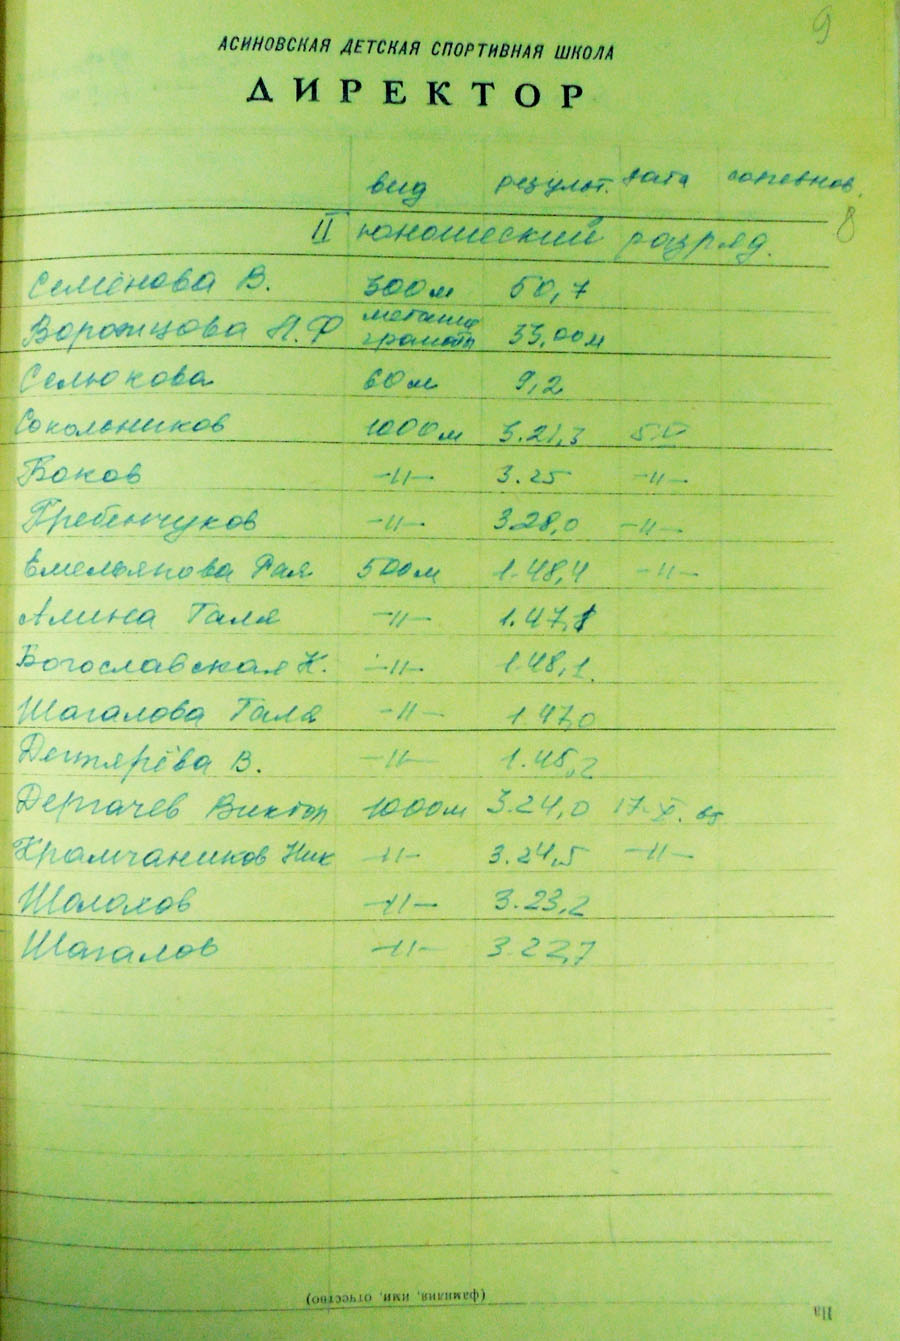 9
АСИНОВСКАЯ ДЕТСКАЯ СПОРТИВНАЯ ШКОЛА
ДИРЕКТОР
вид результ. дата соревнов.
8
II юношеский разряд.
Семёнова В. 300м 50,7
Ворожцова Н.Ф метание гранаты 33,00м
Селюкова 60м 9,2
Сокольников 1000м 3.21,3
Боков —"— 3.25 —"—
Гребенчуков —"— 3.28,0 —"—
Емельянова Рая 500м 1.48,4 —"—
Алина Галя —"— 1.47,1
Богославская Н. —"— 1.48,1.
Шагалова Галя —"— 1.47,0
Дегтярёва В. —"— 1.45,2
Дергачев Виктор 1000м 3.24,0 17.X.
Храмчаников Ник —"— 3.24,5 —"—
Шолохов —"— 3.23,2
Шагалов —"— 3.22,7
(фамилия, имя, отчество)
На